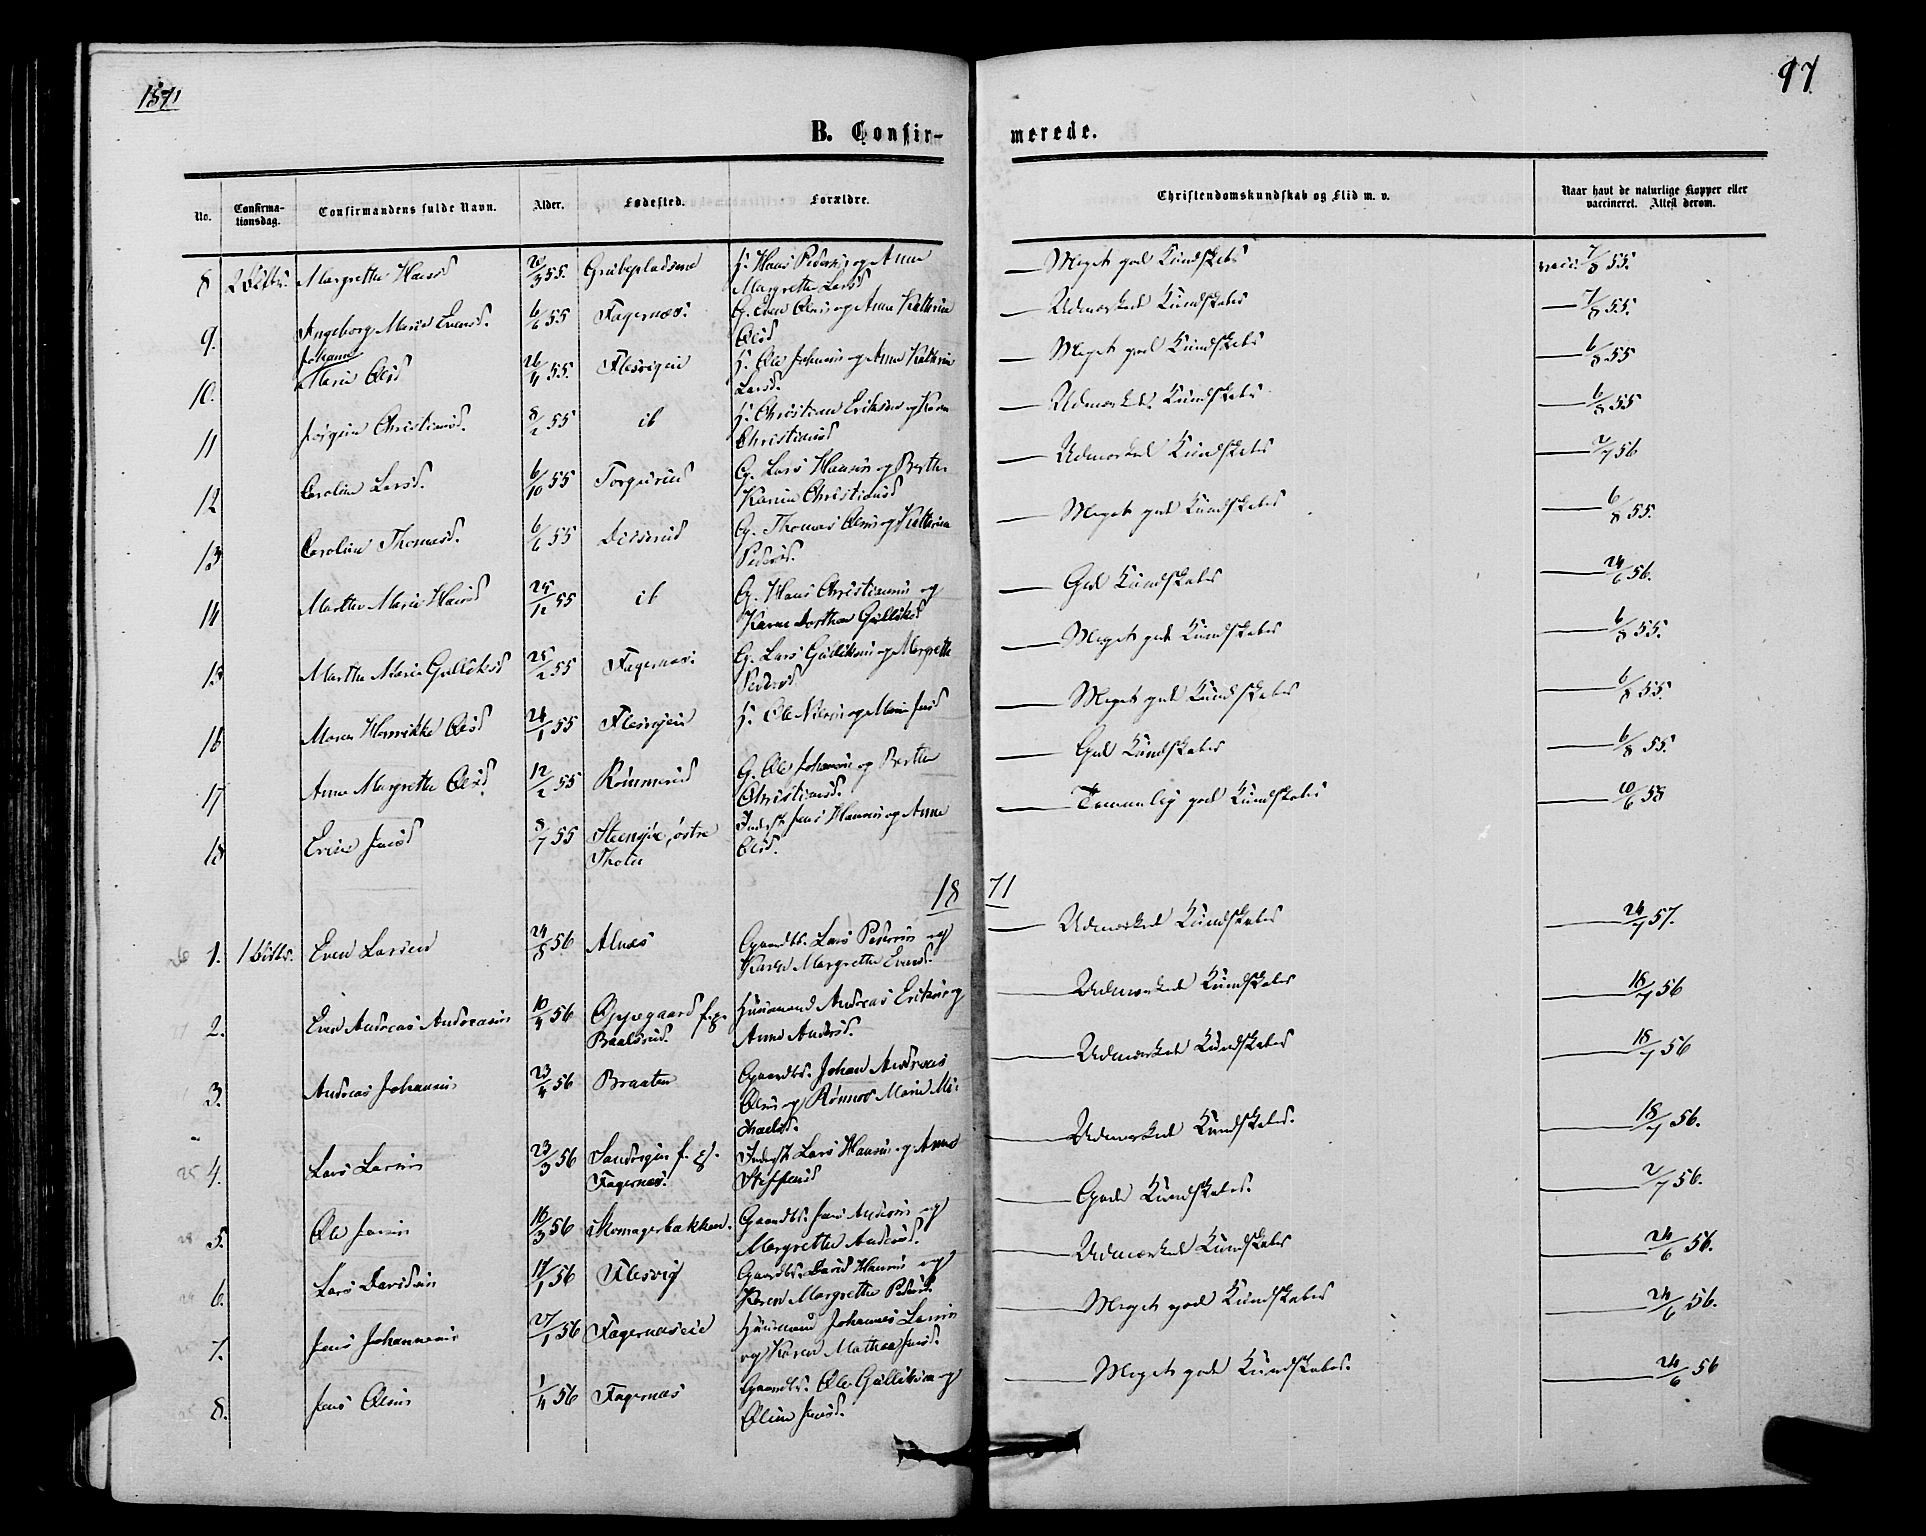 1871
97
B. Confir-
merede.
No.
Confirma-
tionsdag.
Confirmandens fulde Navn.
Alder.
Fødested.
Forældre.
Christendomskundskab og Flid m. v.
Naar havt de naturlige Kopper eller
vaccineret. Attest derom.
8 Margrethe Hansd 20/3 55. Grubepladsene H. Hans Pedersen og Anne — Meget god Kundskaber vacc. 7/8 55.
Margrethe Larsd
9. Ingeborg Marie Evensd. 6/6 55 Fagernæs. G. Even Olsen og Anne Kathrine — Udmærket Kundskaber — 7/8 55.
Olsd
Johanne
10. Marie Olsd 26/4 55. Flesvigeie H. Ole Johansen og Anne Kathrine — Meget god Kundskaber — 6/8 55
Larsd.
11 Jørgine Christiansd. 8/2 55 ib H. Christian Eriksen og Karen — Udmærket Kundskaber — 6/8 55
Christiansd
12 Caroline Larsd. 6/10 55 Torgersrud G. Lars Hansen og Berthe — Udmærket Kundskaber — 2/7 56
Karine Christiansd
13 Caroline Thomasd. 6/6 55 Disserud G. Thomas Olsen og Kathrine — Meget god Kundskaber — 6/8 55.
Pedersd.
14 Marthe Marie Hansd 25/12 55 ib G. Hans Christiansen og — God Kundskaber — 24/6 56.
Karen Dorthea Gulliksd
15 Marthe Marie Gulliksd 25/2 55 Fagernæs. G. Lars Gulliksen og Margrethe — Meget god Kundskaber — 6/8 55.
Pedersd
16 Maren Henrikke Olsd 24/1 55 Flesvigeie H. Ole Nilsen og Marie Jensd — Meget god Kundskaber — 6/8 55.
17 Anne Margrethe Olsd. 12/2 55 Rømmerud G. Ole Johansen og Berthe — God Kundskaber — 6/8 55.
Christiansd.
18 Eline Jensd 8/7 55 Steensjøe, østre Inderst Jens Hansen og Anne — Temmelig god Kundskaber — 10/6 58
Thoten Olsd.
1871
1. Even Larsen 24/8 56. Alnæs Gaardbr. Lars Pedersen og — Udmærket Kundskaber — 24/7 57.
Karen Margrethe Evensd.
2. Even Andreas Andreasen 10/4 56 Oppegaard f. p. Huusmand Andreas Eriksen og — Udmærket Kundskaber — 18/7 56
Baalsrud. Anne Andersd.
3. Andreas Johansen 23/4 56 Braaten Gaardbr. Johan Andreas — Udmærket Kundskaber — 18/7 56
Olsen og Rønnov Marie Mi-
chaelsd.
4. Lars Larsen 23/3 56 Sandvigen f. p. Inderst Lars Hansen og Anne — Udmærket Kundskaber. — 18/7 56.
Fagernæs. Steffensd
5. Ole Jensen 18/3 56 Skomagerbakken. Gaardbr. Jens Andersen og — Gode Kundskaber. — 2/7 56.
Margrethe Andersd.
6. Lars Davidsen 14/1 56 Flesvig Gaardbr. David Hansen og — Udmærket Kundskaber — 24/6 56.
Karen Margrethe Pedersd.
7. Jens Johannesen 27/1 56 Fagernæseie Huusmand Johannes Larsen — Meget god Kundskaber — 24/6 56.
og Karen Mathea Jensd.
8. Jens Olsen 1/4 56 Fagernæs Gaardbr. Ole Gulliksen og — Meget god Kundskaber. — 24/6 56
Oline Jensd.